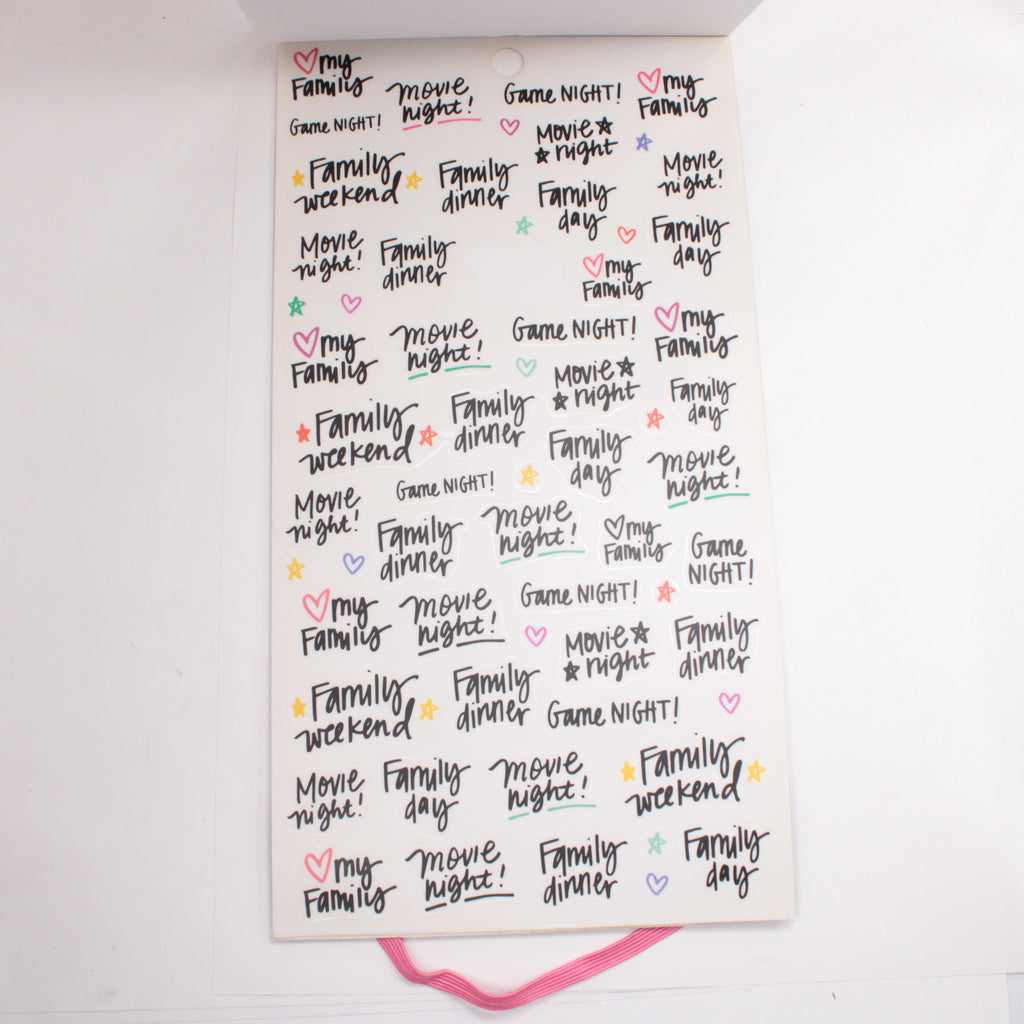 my
Family
movie
night!
Game NIGHT!
my
Family
Game NIGHT!
Movie
night
Family
weekend
Family
dinner
Movie
night!
Family
day
Family
day
Movie
night!
Family
dinner
my
Family
my
Family
movie
night!
Game NIGHT!
my
Family
Movie
night
Family
day
Family
weekend
Family
dinner
Family
day
movie
night!
Movie
night!
Game NIGHT!
Family
dinner
movie
night!
my
Family
Game
NIGHT!
my
Family
movie
night!
Game NIGHT!
Movie
night
Family
dinner
Family
weekend
Family
dinner
Game NIGHT!
Movie
night!
Family
day
movie
night!
Family
weekend
my
Family
movie
night!
Family
dinner
Family
day